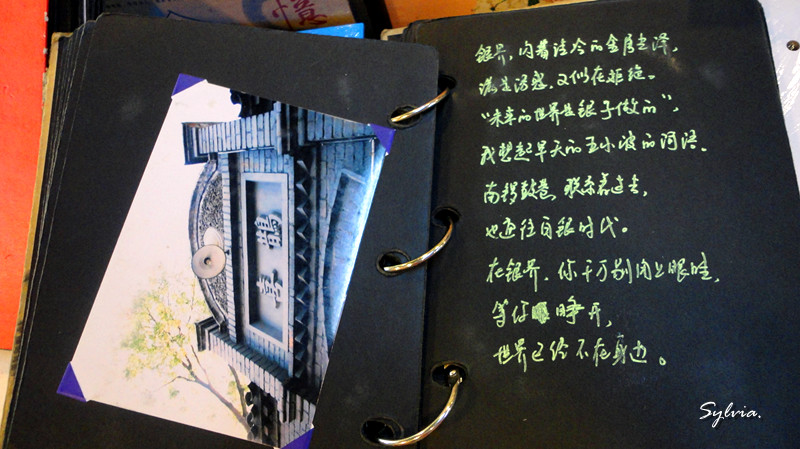 憶
银界,闪着清冷的金属光泽,
满是诱惑,又似在拒绝。
“未来的世界是银子做的”,
我想起早夭的王小波的阿语。
南锣鼓巷,联系着过去,
也通往白银时代。
在银界,你千万别闭上眼睛,
等你睁开,
世界已经不在身边。
Sylvia.